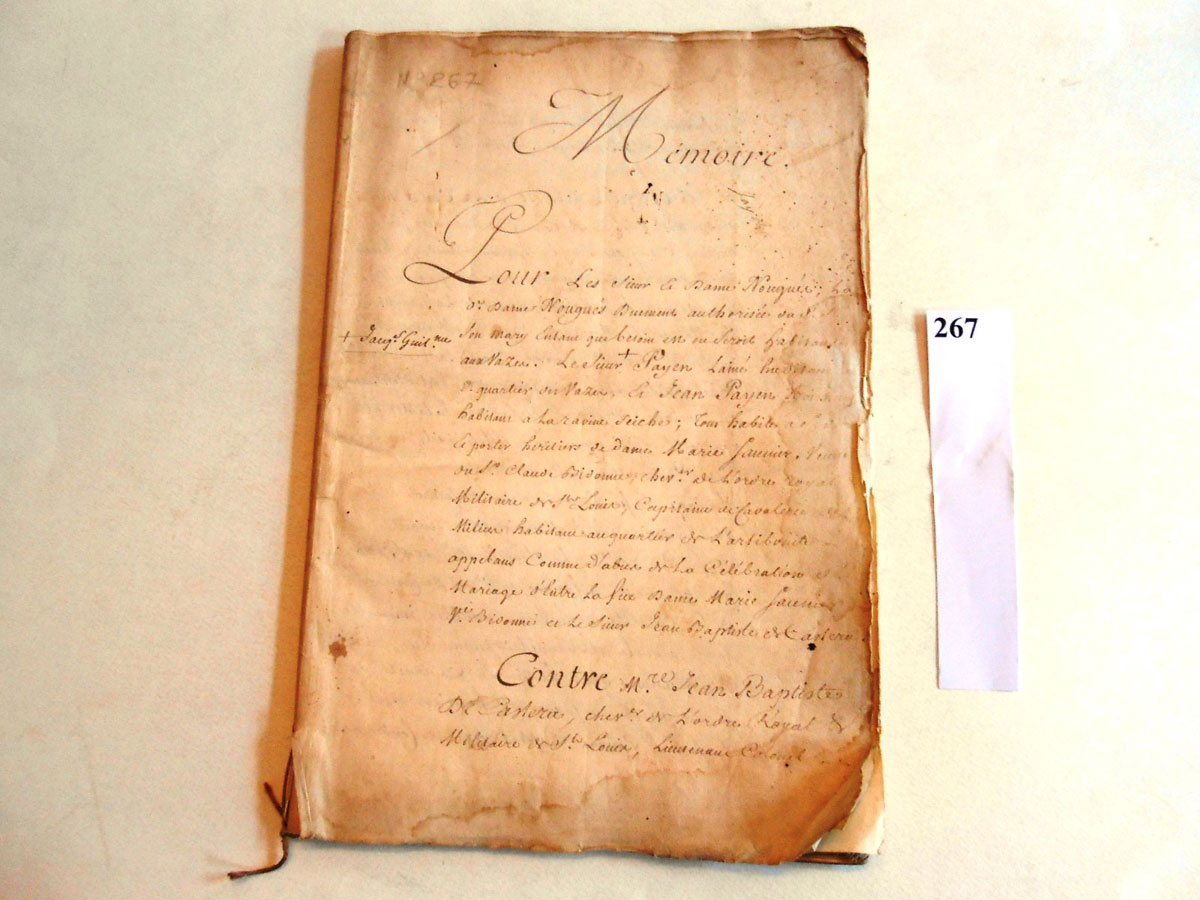 N° 267
Mémoire.
Pour Les Sieur & Dame Nougués;
Dame Nougués Duement authorisée du S.
+ Jacq.s Guil.me
Son mary Entant que besoin est ou Seroit habitans
aux Vazes. Le Sieur + Payen Lainé
quartier des Vazes, & Jean Payen
habitant a La ravine Seiche;
Se porter heritiers de Dame Marie Saunier
du S.r Claude Bidonne, chev.er de L'ordre royal
Militaire de S.t Louis, Capitaine de Cavalerie
Milices habitant au quartier de L'artibonite
appelans Comme d'abus de La Célébration
Mariage d'Entre La feüe Dame Marie Saunier
V.ve Bidonne et Le Sieur Jean Baptiste de Casterie
Contre M.re Jean Baptiste
De Casterie, chev.r de L'ordre Royal &
Militaire de S.t Louis, Lieutenant Colonel
267